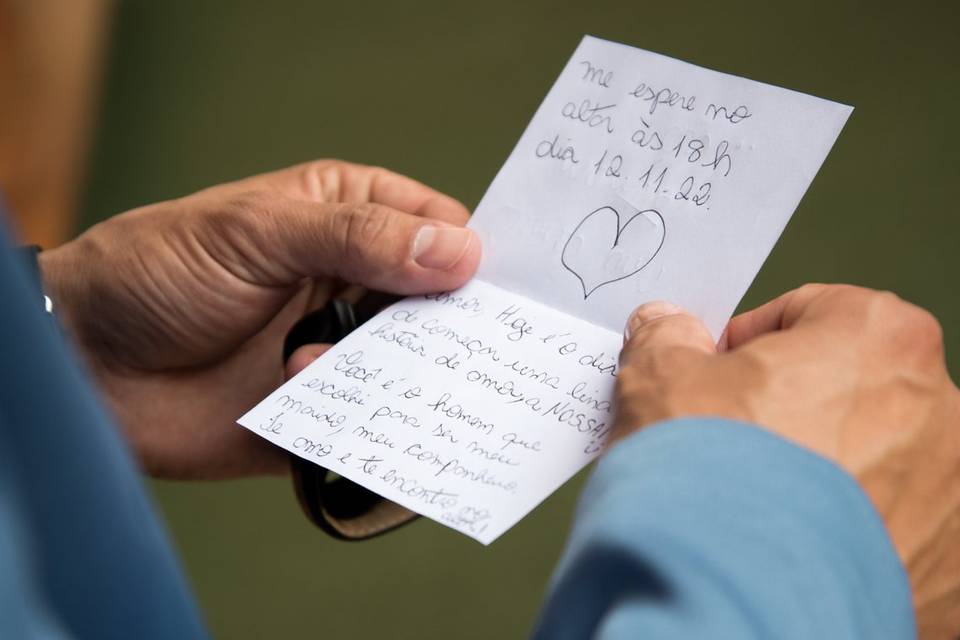 me espere no
altar às 18h
dia 12.11.22.
Amor, Hoje é o dia
de começar uma linda
história de amor, a NOSSA!
Você é o homem que
escolhi para ser meu
marido, meu companheiro.
Te amo e te encontro no
altar!